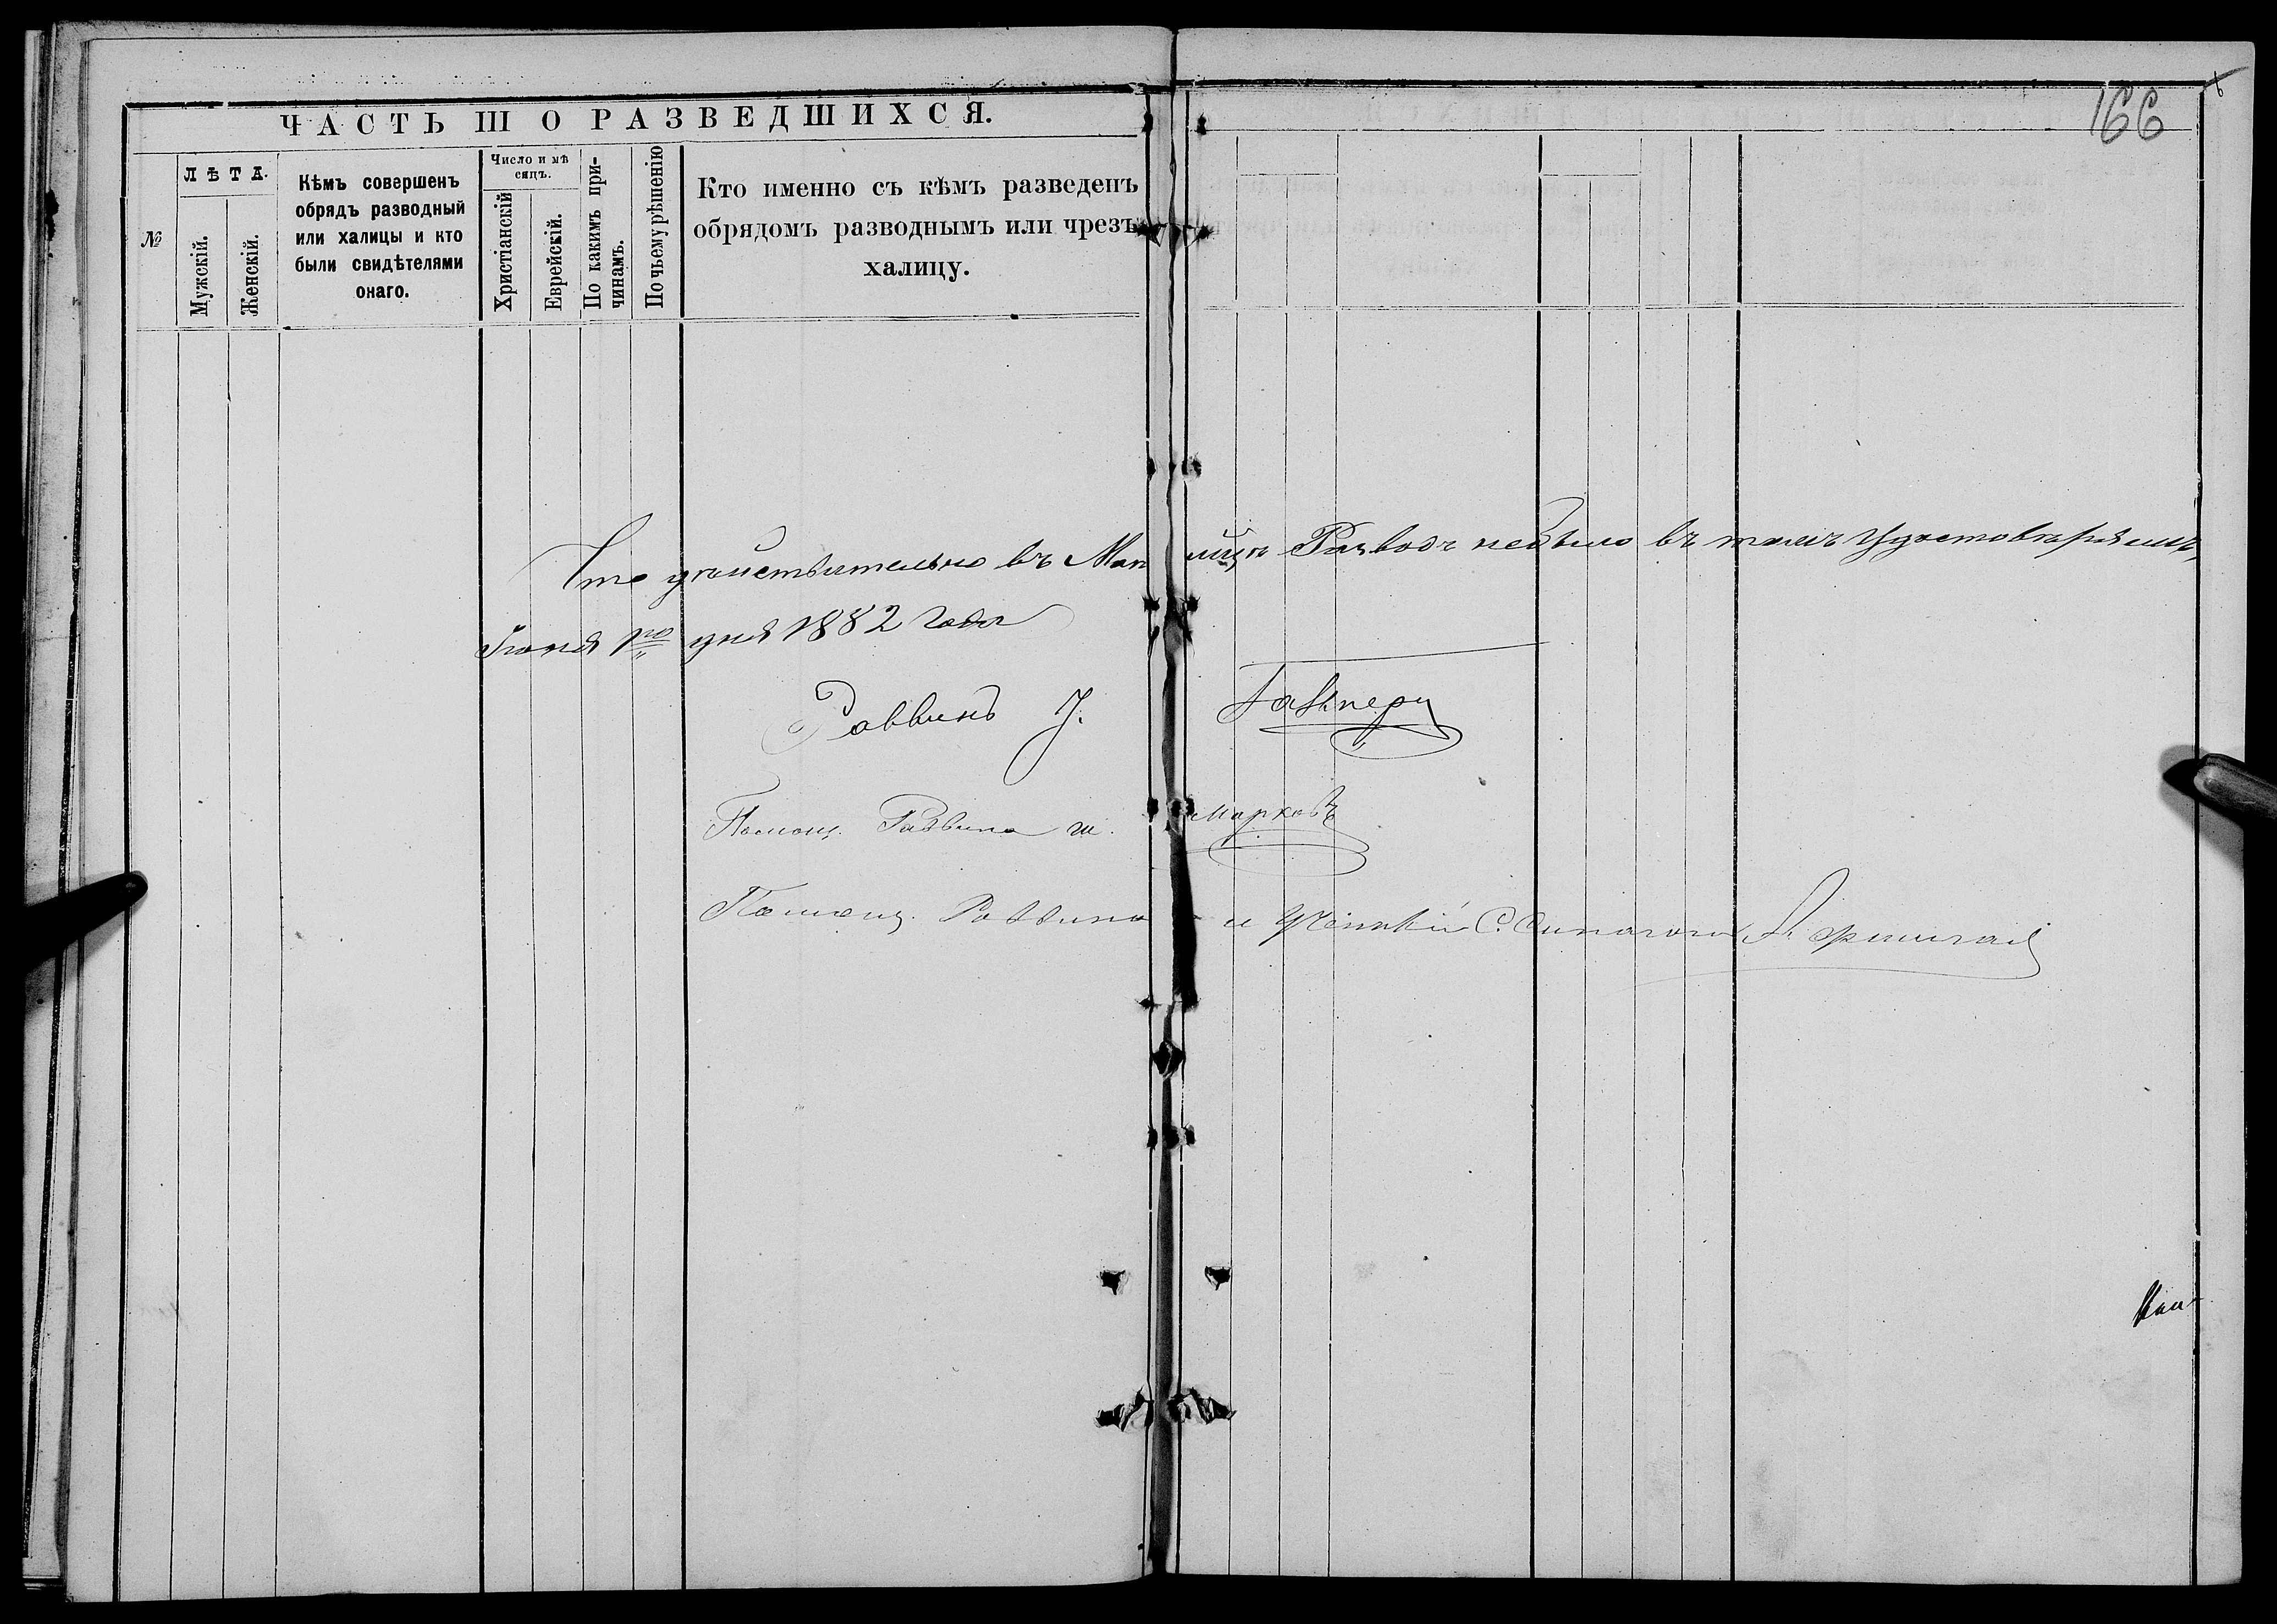 166
ЧАСТЬ III О РАЗВЕДШИХСЯ.
№
ЛѢТА.
Мужскій.
Женскій.
Кѣмъ совершенъ
обрядъ разводный
или халицы и кто
были свидѣтелями
онаго.
Число и мѣ
сяцъ.
Христіанскій
Еврейскій.
По какимъ при-
чинамъ.
По чьему рѣшенію
Кто именно съ кѣмъ разведенъ
обрядомъ разводнымъ или чрезъ
халицу.
Что дѣйствительно въ Разводъ небыло въ томъ удостовѣряемъ,
1го дня 1882 года
Раввинъ J.
Помощ. Раввина ш. Марковъ
Помощ. Раввина и С. Синагоги